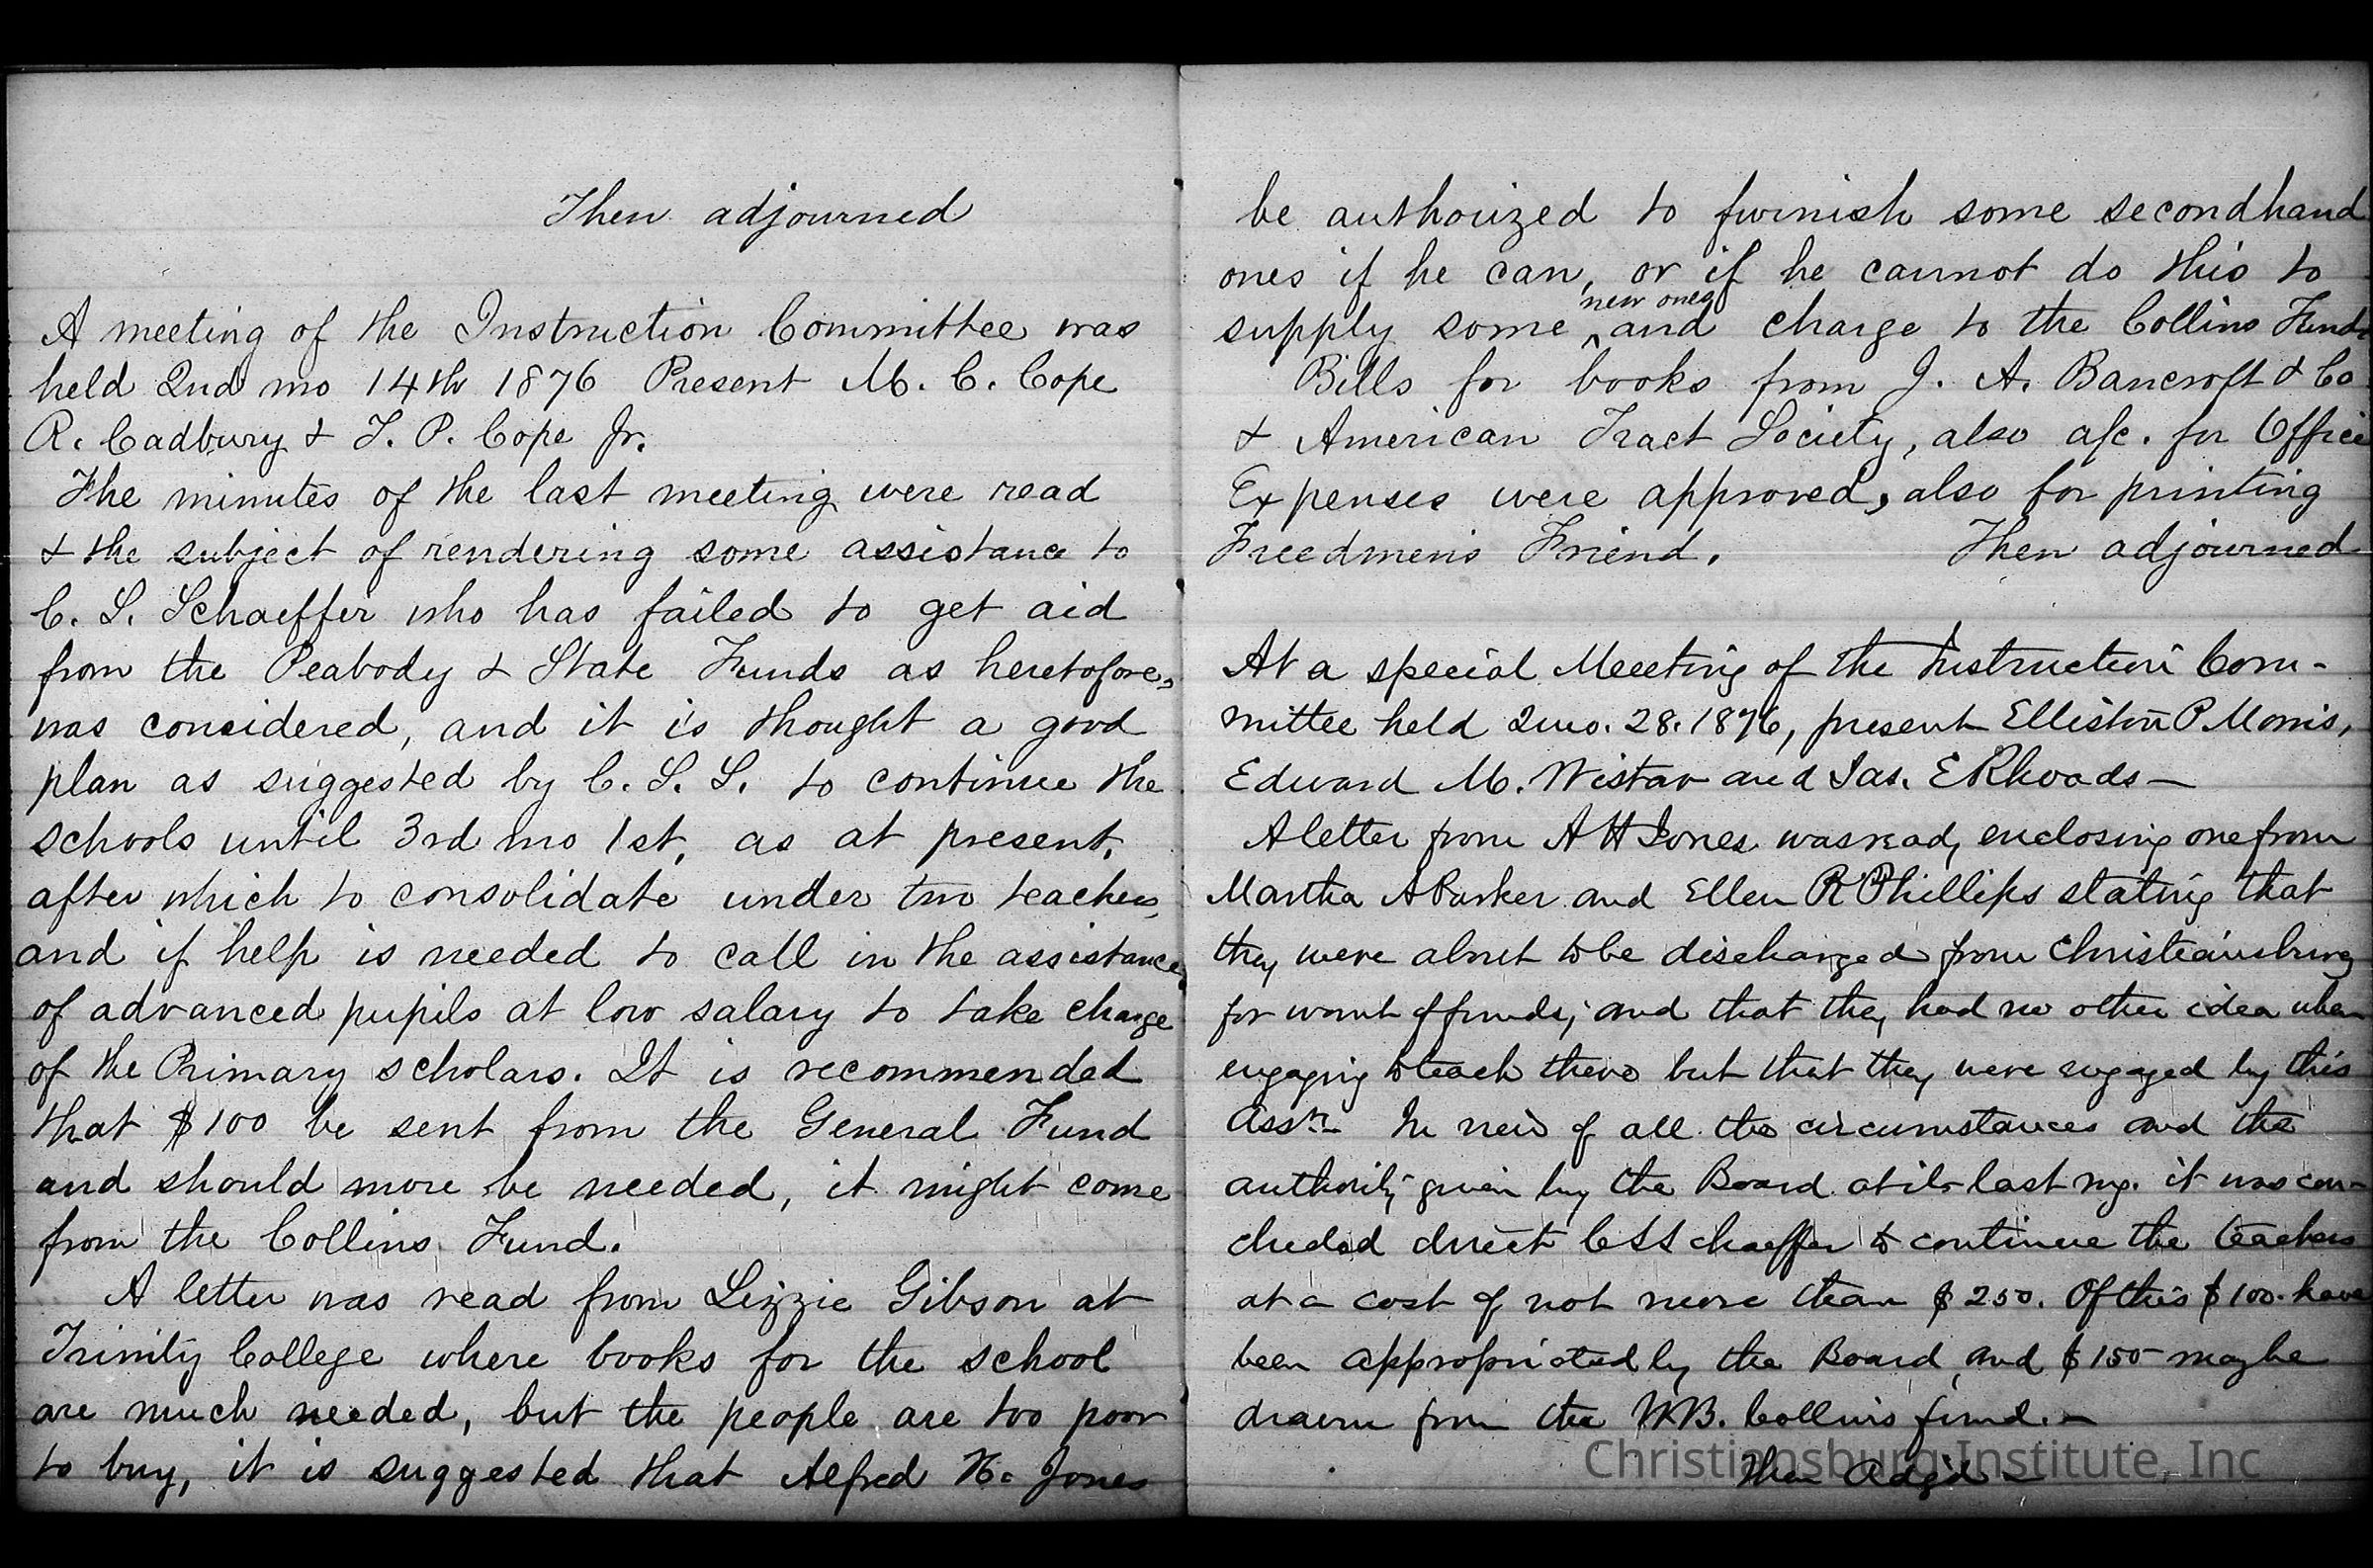 Then adjourned
A meeting of the Instruction Committee was
held 2nd mo 14th 1876 Present M. C. Cope
R. Cadbury & T. P. Cope Jr.
The minutes of the last meeting were read
& the subject of rendering some assistance to
C. S. Schaeffer who has failed to get aid
from the Peabody & State Funds as heretofore,
was considered, and it is thought a good
plan as suggested by C. S. S. to continue the
schools until 3rd mo 1st, as at present,
after which to consolidate under two teachers,
and if help is needed to call in the assistance
of advanced pupils at low salary to take charge
of the Primary scholars. It is recommended
that $100 be sent from the General Fund
and should more be needed, it might come
from the Collins Fund.
A letter was read from Lizzie Gibson at
Trinity College where books for the school
are much needed, but the people are too poor
to buy, it is suggested that Alfred H. Jones
be authorized to furnish some secondhand
ones if he can, or if he cannot do this to
supply some ^new ones and charge to the Collins Fund
Bills for books from J. A. Bancroft & Co
& American Tract Society, also a/c. for Office
Expenses were approved, also for printing
Freedmen's Friend. Then adjourned
At a special Meeeting of the Instruction Com-
mittee held 2mo. 28. 1876, present Elliston P Morris,
Edward M. Wistar and Jas. E Rhoads —
A letter from A H Jones was read, enclosing one from
Martha A Parker and Ellen R Phillips stating that
they were about to be discharged from Christiansburg
for want of funds, and that they had no other idea when
engaging to teach there but that they were engaged by this
Assn. In view of all the circumstances and the
authority given by the Board at its last mg. it was con-
cluded direct C S Schaeffer to continue the teachers
at a cost of not more than $250. Of this $100. have
been appropriated by the Board, and $150 may be
drawn from the W.B. Collins fund. —
Then Adj'd —
Christiansburg Institute, Inc